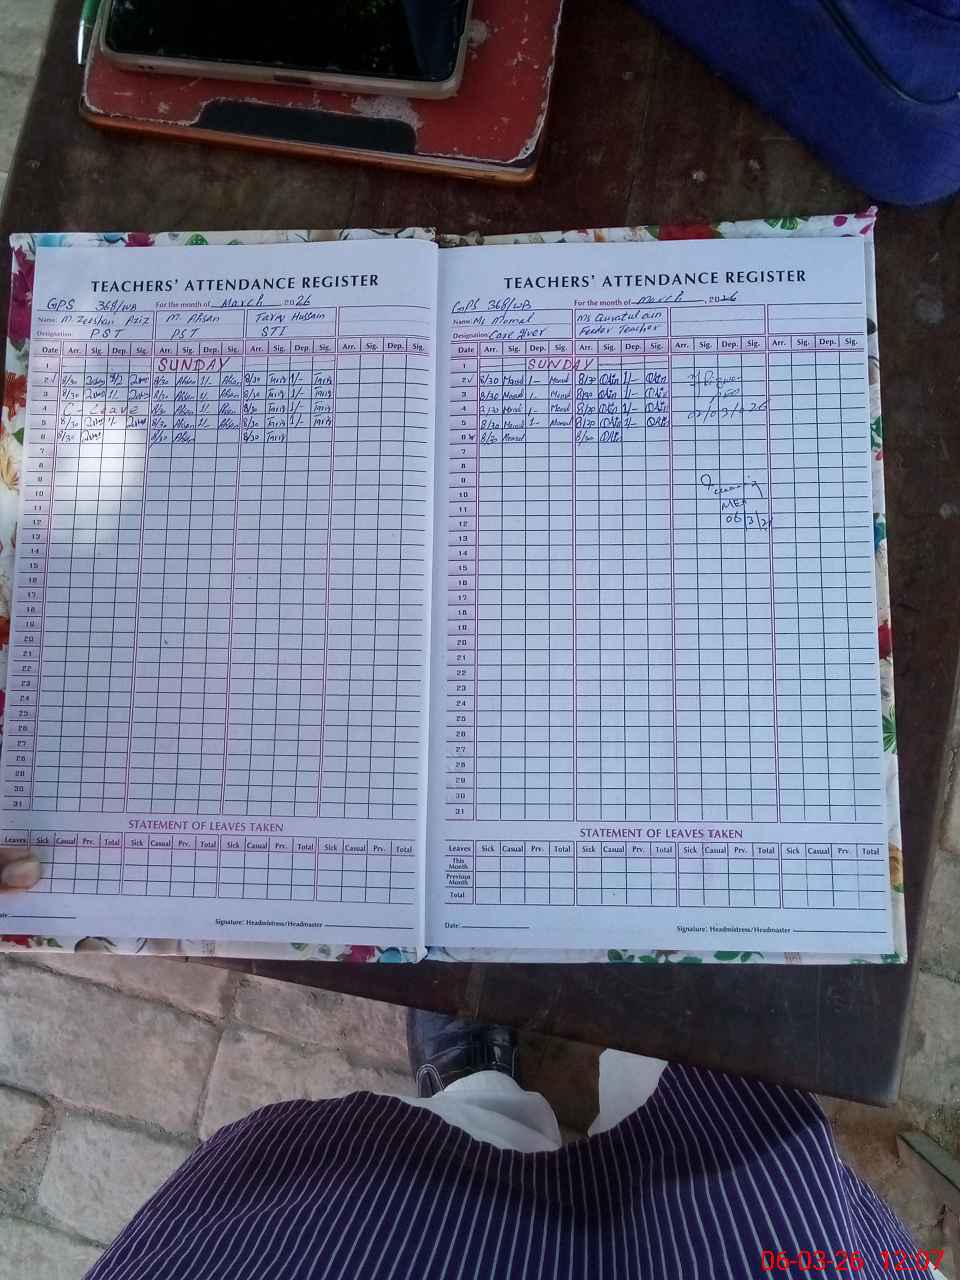 TEACHERS' ATTENDANCE REGISTER
GPS 368/WB For the month of March 2026
Name: M. Zeeshan Aziz M. Ahsan Tariq Hussain
Designation: PST PST STI
Date Arr. Sig. Dep. Sig. Arr. Sig. Dep. Sig. Arr. Sig. Dep. Sig. Arr. Sig. Dep. Sig.
1 SUNDAY
2 8/30 8/30 Ahsan 1/- Ahsan 8/30 Tariq 1/- Tariq
3 8/30 1/- 8/30 Ahsan 1/- Ahsan 8/30 Tariq 1/- Tariq
4 C - Leave 8/30 Ahsan 1/- Ahsan 8/30 Tariq 1/- Tariq
5 8/30 1/- 8/30 Ahsan 1/- Ahsan 8/30 Tariq 1/- Tariq
6 8/30 8/30 Ahsan 8/30 Tariq
7
8
9
10
11
12
13
14
15
16
17
18
19
20
21
22
23
24
25
26
27
28
29
30
31
STATEMENT OF LEAVES TAKEN
Leaves Sick Casual Prv. Total Sick Casual Prv. Total Sick Casual Prv. Total Sick Casual Prv. Total
Date:
Signature: Headmistress/Headmaster
TEACHERS' ATTENDANCE REGISTER
GPS 368/WB For the month of March, 2026
Name: Ms Momal Ms Quratulain
Designation: Care Giver Feeder Teacher
Date Arr. Sig. Dep. Sig. Arr. Sig. Dep. Sig. Arr. Sig. Dep. Sig. Arr. Sig. Dep. Sig.
1 SUNDAY
2 8/30 Momal 1- Momal 8/30 1/-
3 8/30 Momal 1- Momal 8/30 1/-
4 8/30 Momal 1- Momal 8/30 1/-
02/03/2026
5 8/30 Momal 1- Momal 8/30 1/-
6 8/30 Momal 8/30
7
8
9
10
11
MEA
12
06/3/2
13
14
15
16
17
18
19
20
21
22
23
24
25
26
27
28
29
30
31
STATEMENT OF LEAVES TAKEN
Leaves Sick Casual Prv. Total Sick Casual Prv. Total Sick Casual Prv. Total Sick Casual Prv. Total
This Month
Previous Month
Total
Date:
Signature: Headmistress/Headmaster
06-03-26 12:07